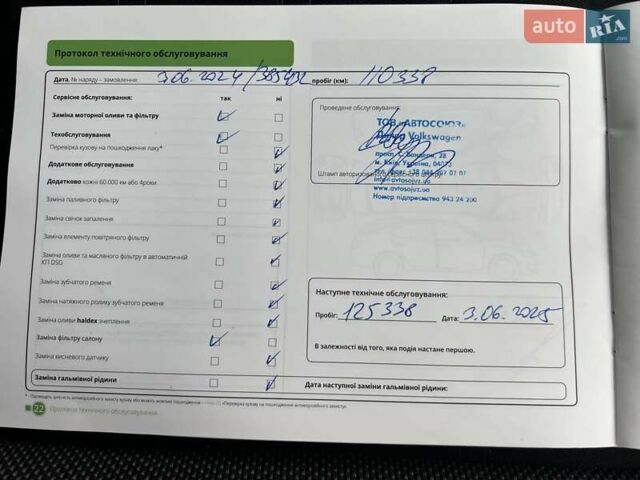 auto RIA .com
Протокол технічного обслуговування
Дата, № наряду – замовлення: 3.06.2024 / 385432 пробіг (км): 110338
Сервісне обслуговування: так ні
Заміна моторної оливи та фільтру
Техобслуговування
Перевірка кузову на пошкодження лаку*
Додаткове обслуговування
Додатково кожні 60.000 км або 4роки
Заміна паливного фільтру
Заміна свічок запалення
Заміна елементу повітряного фільтру
Заміна оливи та масляного фільтру в автоматичній
КП DSG
Заміна зубчатого ременя
Заміна натяжного ролику зубчатого ременя
Заміна оливи haldex зчеплення
Заміна фільтру салону
Заміна кисневого датчику
Заміна гальмівної рідини
Проведене обслуговування:
ТОВ «АВТОСОЮЗ»
Volkswagen
просп. С. Бандери, 28
м. Київ, Україна, 04073
Штамп авторизованого
info@avtosojuz.ua
www.avtosojuz.ua
Номер підприємства 943 24 200
Наступне технічне обслуговування:
Пробіг: 125338 Дата: 3.06.2025
В залежності від того, яка подія настане першою.
Дата наступної заміни гальмівної рідини:
22 Протокол технічного обслуговування